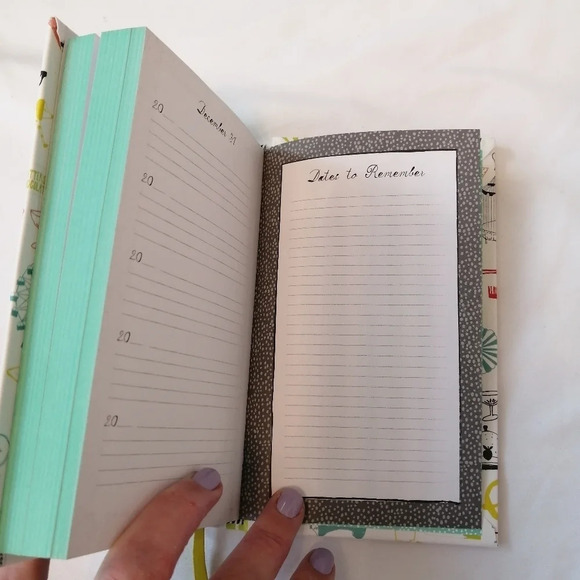 December 31
20
20
20
20
20
Dates to Remember